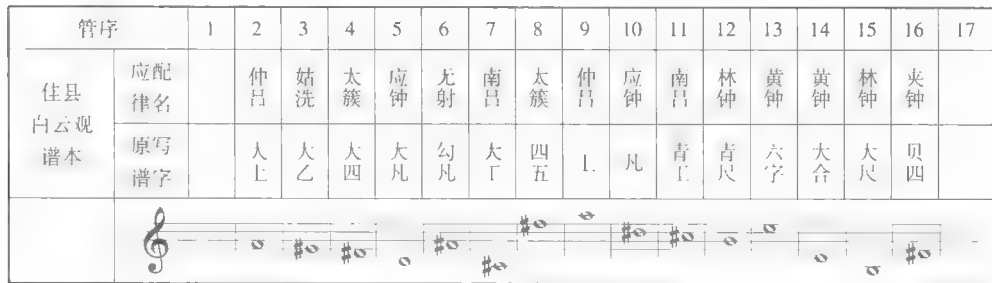 管序 1 2 3 4 5 6 7 8 9 10 11 12 13 14 15 16 17
佳县白云观谱本
应配律名 仲吕 姑洗 太簇 应钟 无射 南吕 太簇 仲吕 应钟 南吕 林钟 黄钟 黄钟 林钟 夹钟
原写谱字 大上 大乙 大四 大凡 勾凡 大工 四五 上 凡 青工 青尺 六字 大合 大尺 贝四